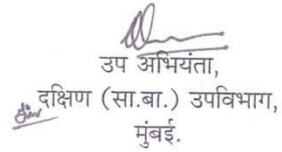 उप अभियंता,
दक्षिण (सा.बा.) उपविभाग,
मुंबई.